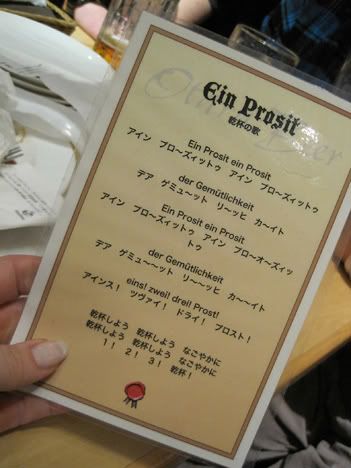 Ein Prosit
乾杯の歌
Ein Prosit ein Prosit
アイン プロ〜ズィットゥ アイン プロ〜ズィットゥ
der Gemütlichkeit
デア ゲミュ〜〜ット リ〜ッヒ カ〜イト
Ein Prosit ein Prosit
アイン プロ〜ズィットゥ アイン プロ〜オ〜ズィッ
トゥ
der Gemütlichkeit
デア ゲミュ〜〜ット リ〜〜ッヒ カ〜〜イト
eins! zwei! drei! Prost!
アインス! ツヴァイ! ドライ! プロスト!
乾杯しよう 乾杯しよう なごやかに
乾杯しよう 乾杯しよう なごやかに
1! 2! 3! 乾杯!